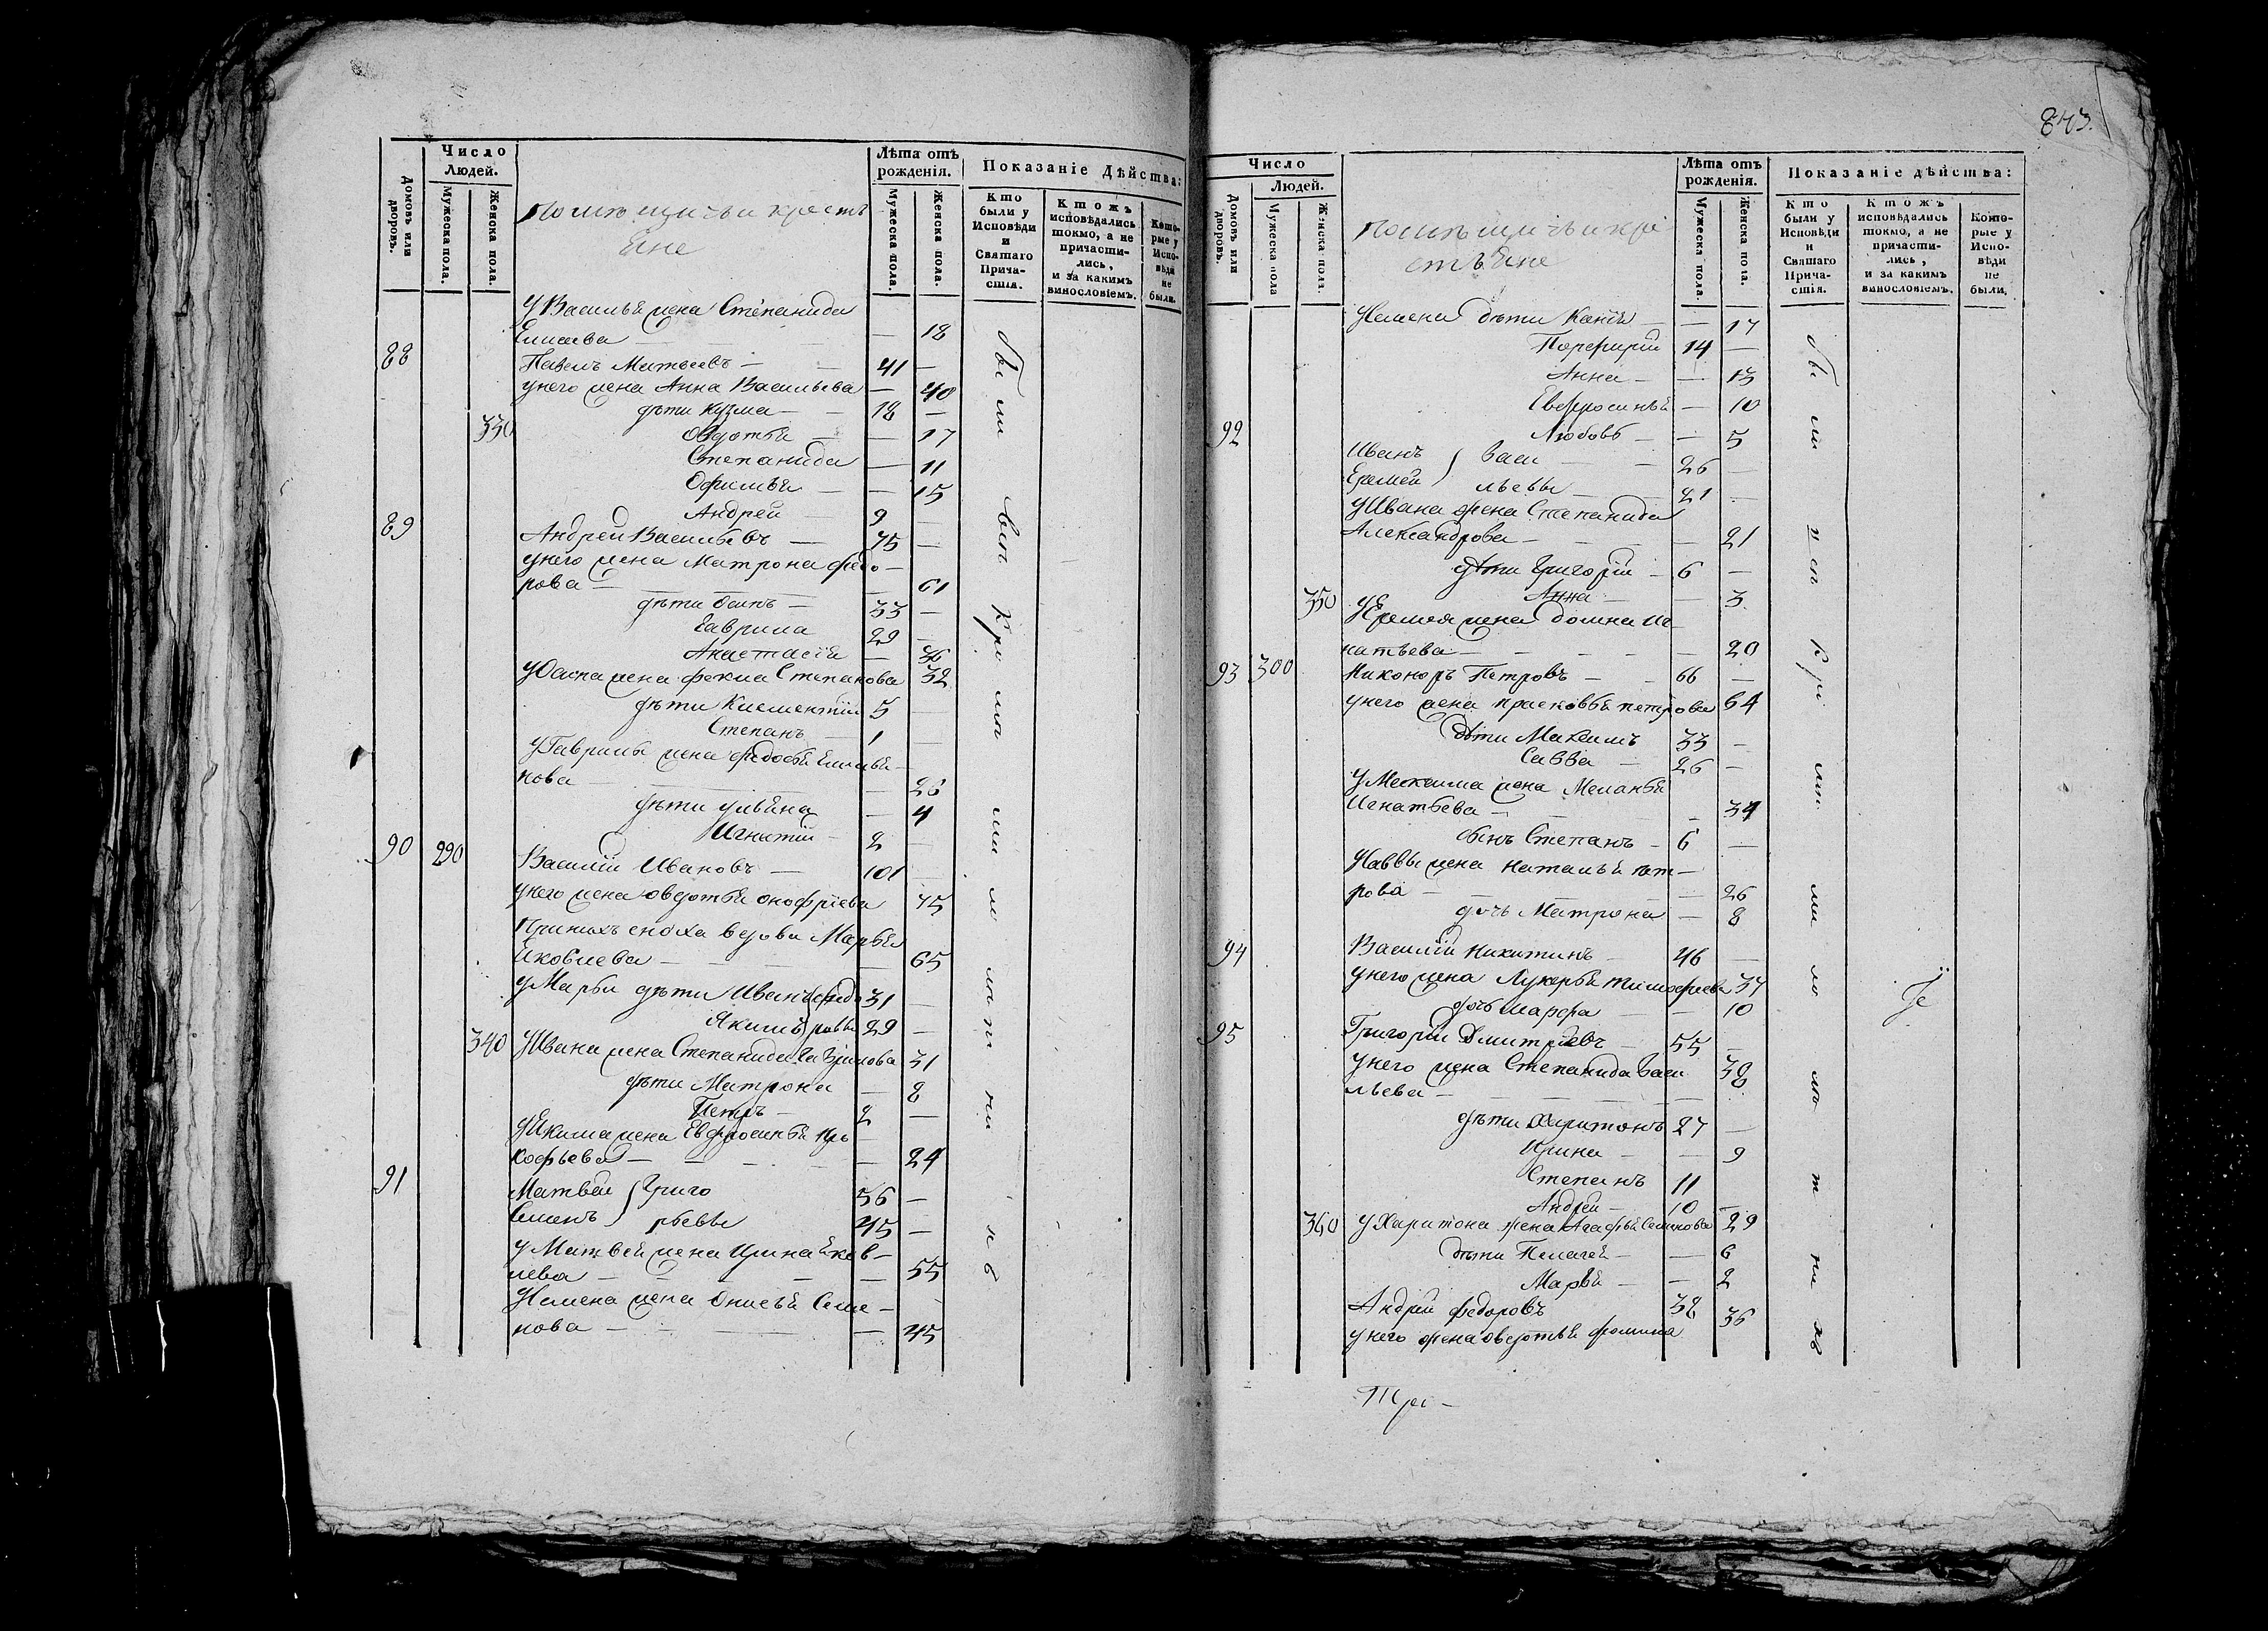 873.
Число
Людей.
Домовъ или дворовъ.
Мужеска пола.
Женска пола.
Помѣщичьи кресть
яне
Лѣта отъ
рожденія.
Мужеска пола.
Женска пола.
Показаніе Дѣйства:
Кто были у Исповѣди и Святаго Прича-стія.
Ктожъ исповѣдались токмо, а не причасти-лись, и за какимъ винословіемъ.
Кото-рые у Испо-вѣди не были.
У Василья жена Степанида
— 18
88 Павелъ Матвеевъ — 41 —
у него жена Анна Васильева — 40
дѣти Кузма — 18 —
330 Овдотья — 17
Степанида — 11
Офимья — 15
Андрей 9 —
89 Андрей Васильевъ — 75 —
у него жена Матрона федо-
рова — 61
дѣти Осипъ — 33 —
Гаврила 29 —
Анастасія — 36
у Осипа жена фекла Степанова 32
дѣти Климентiй 5 —
Степанъ — 1 —
у Гаврилы жена федосья
нова — 26
дѣти ульяна — 4
Игнатiй — 2 —
90 290 Василiй Ивановъ — 101 —
у него жена овдотья онофрiева 75
вдова Марья
Яковлева — 65
у Марьи дѣти Иванъ федо 31 —
Якимъ ровы 29 —
340 у Ивана жена Степанида Гаврилова 31
дѣти Матрона — 8
Петръ — 2 —
у Якима жена Евфросинья Про
кофьева — 24
91 Матвѣй Григо 56 —
Семенъ рьевы 45 —
у Матвея жена Ирина Яков-
лева — 55
У Семена жена Онисья Семе-
нова — 45
Число
Людей.
Домовъ или дворовъ.
Мужеска пола
Женска пола.
Помѣщичьи кре
стьяне
Лѣта отъ
рожденія.
Мужеска пола.
Женска пола.
Показаніе дѣйства:
Кто были у Исповѣди и Святаго Прича-стія.
Ктожъ исповѣдались токмо, а не причасти-лись, и за какимъ винословіемъ.
Кото-рые у Испо-вѣди не были,
У Семена дѣти — 17
Порфирий 14 —
Анна — 13
Евфросинья — 10
Любовь — 5
92 Иванъ Васи — 26 —
Еремей льевы 21 —
у Ивана жена Степанида
Александрова — 21
дѣти Григорiй — 6 —
350 Анна — 3
у Еремея жена домна Иг-
натьева — 20
93 300 Никоноръ Петровъ — 66 —
у него жена прасковья петрова 64
дѣти Максимъ 33 —
Савва — 26 —
у Максима жена Меланья
Игнатьева — 34
сынъ Степанъ — 6 —
У Саввы жена наталья пет-
рова — 26
дочь Матрона — 8
94 Василiй никитинъ 46 —
у него жена Лукерья тимофеева 37
дочь марфа — 10
95 Григорiй Дмитрiевъ 55 —
у него жена Степанида Васи 38
льева —
дѣти Харитонъ 27 —
Ирина — 9
Степанъ 11
Андрей — 10 —
360 у Харитона жена Агафья Семенова 29
дѣти Пелагея — 6
Марья — 2
Андрей федоровъ 38
у него жена овдотья фомина 36